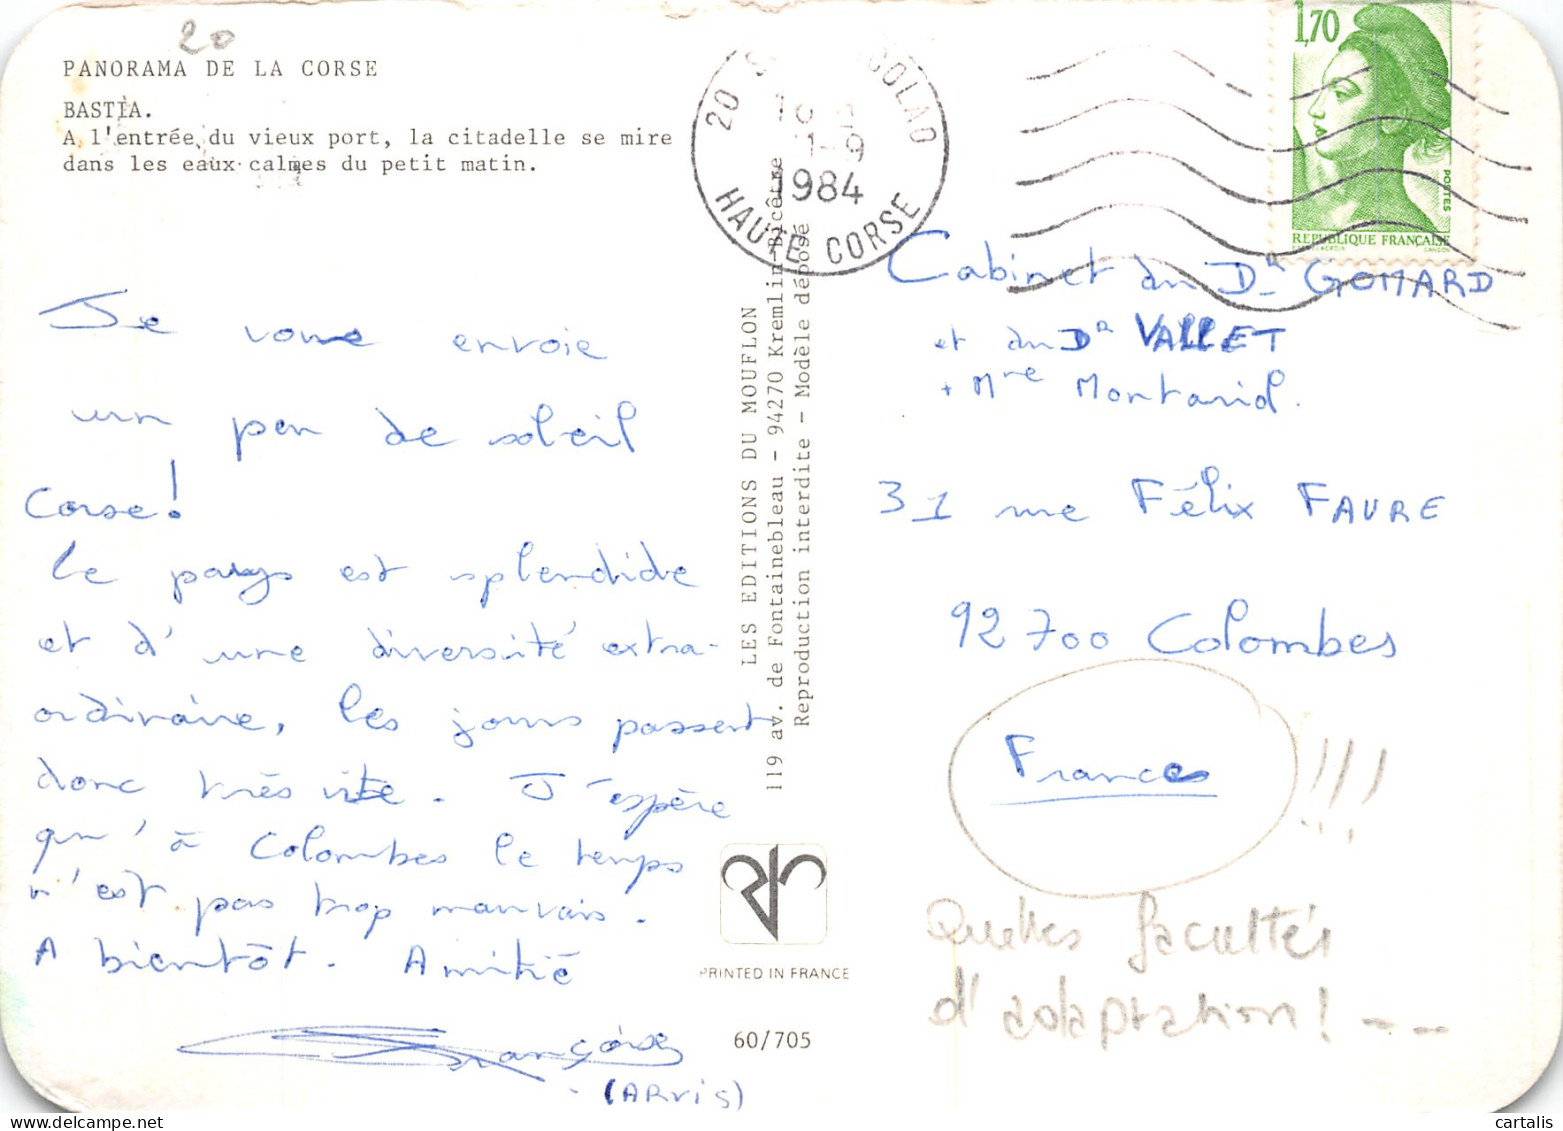 20
PANORAMA DE LA CORSE
BASTIA.
A l'entrée du vieux port, la citadelle se mire
dans les eaux calmes du petit matin.
Je vous envoie
un peu de soleil
Corse!
Le pays est splendide
et d'une diversité extra-
ordinaire, les jours passent
donc très vite. J'espère
qu'à Colombes le temps
n'est pas trop mauvais.
A bientôt. Amitié
Françoise
(ARVIS)
LES EDITIONS DU MOUFLON
119 av. de Fontainebleau - 94270 Kremlin-Bicêtre
Reproduction interdite - Modèle déposé
PRINTED IN FRANCE
60/705
20
1-9
1984
HAUTE CORSE
1,70
POSTES
REPUBLIQUE FRANÇAISE
Cabinet du DR GOMARD
et du DR VALLET
+ Mme Montarid.
31 rue Félix FAURE
92700 Colombes
France !!!
Quelles facultés
d'adaptation! ---
cartalis